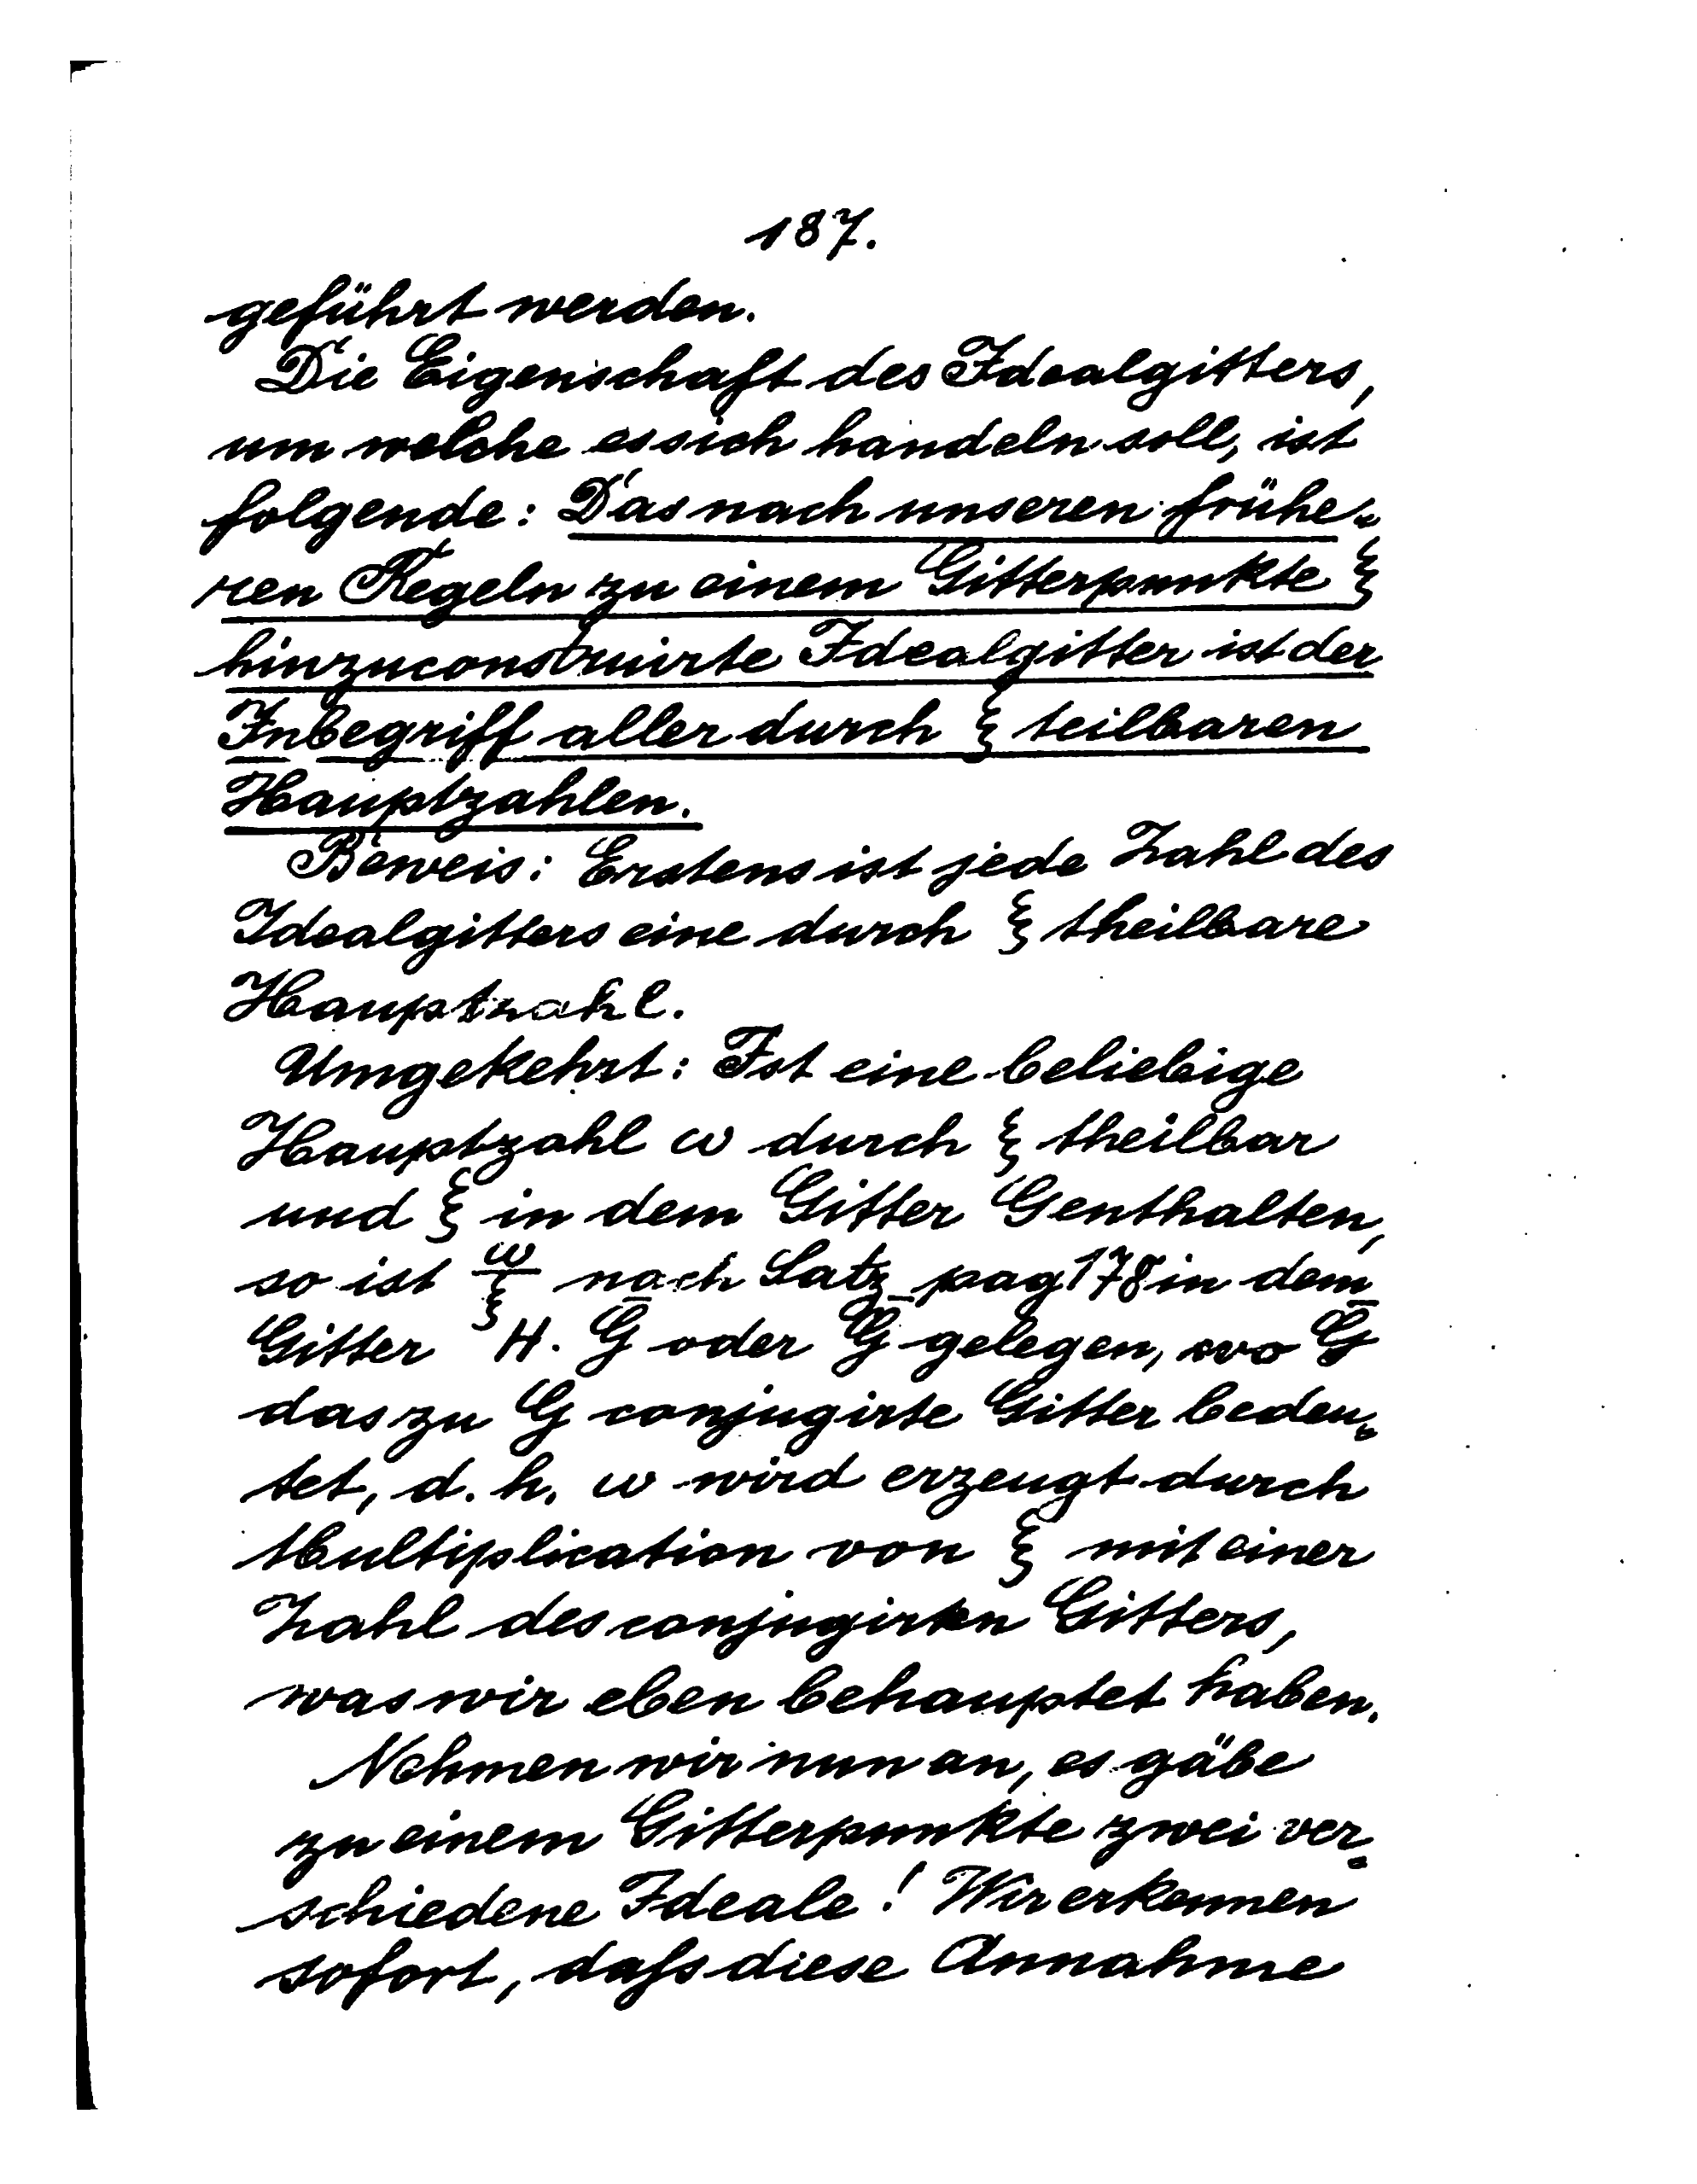 187.
geführt werden.
Die Eigenschaft des Idealgitters,
um welche es sich handeln soll, ist
folgende: Das nach unseren frühe-
ren Regeln zu einem Gitterpunkte ξ
hinzuconstruirte Idealgitter ist der
Inbegriff aller durch ξ teilbaren
Hauptzahlen.
Beweis: Erstens ist jede Zahl des
Idealgitters eine durch ξ theilbare
Hauptzahl.
Umgekehrt: Ist eine beliebige
Hauptzahl ω durch ξ theilbar
und ξ in dem Gitter G enthalten,
so ist ω/ξ nach Satz pag 178 in dem
Gitter H. G̅ oder G̅ gelegen, wo G̅
das zu G conjugirte Gitter bedeu-
tet, d. h. ω wird erzeugt durch
Multiplication von ξ mit einer
Zahl des conjugirten Gitters,
was wir eben behauptet haben.
Nehmen wir nun an, es gäbe
zu einem Gitterpunkte zwei ver-
schiedene Ideale! Wir erkennen
sofort, dafs diese Annahme